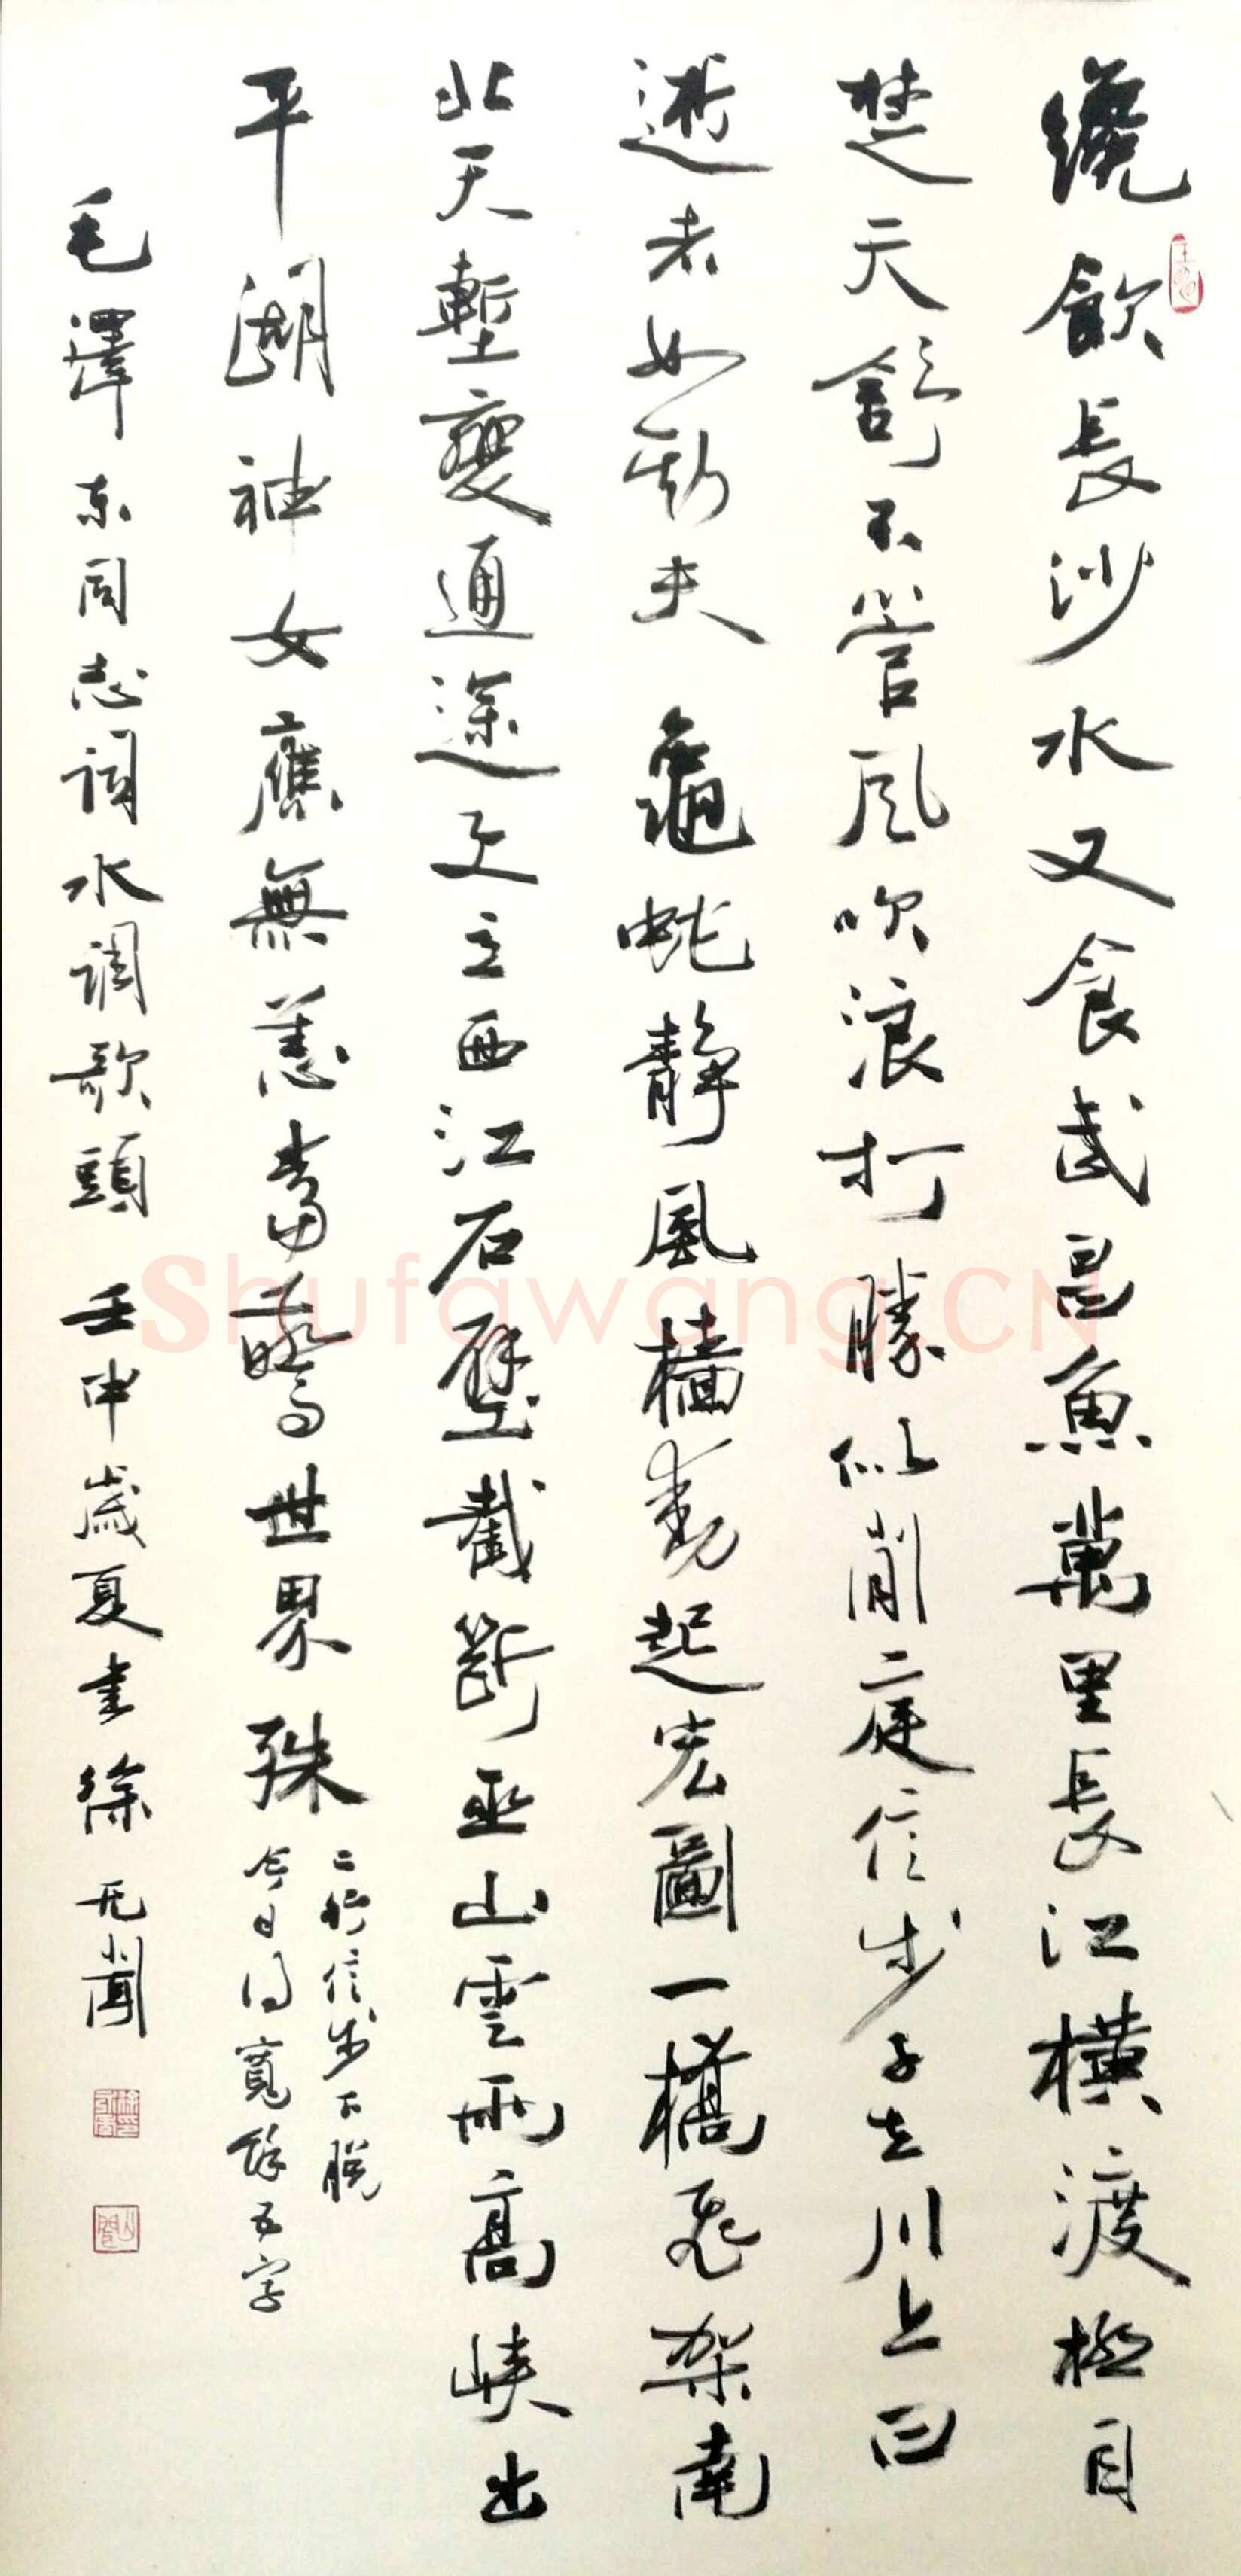 纔飲長沙水又食武昌魚萬里長江橫渡極目
楚天舒不管風吹浪打勝似閒庭信步子在川上曰
逝者如斯夫龜蛇靜風檣動起宏圖一橋飛架南
北天塹變通途更立西江石壁截斷巫山雲雨高峽出
平湖神女應無恙當驚世界殊
二行信步下脱
今日得寬餘五字
毛澤东同志詞水調歌頭 壬申歲夏書徐无聞
Shufawang.CN